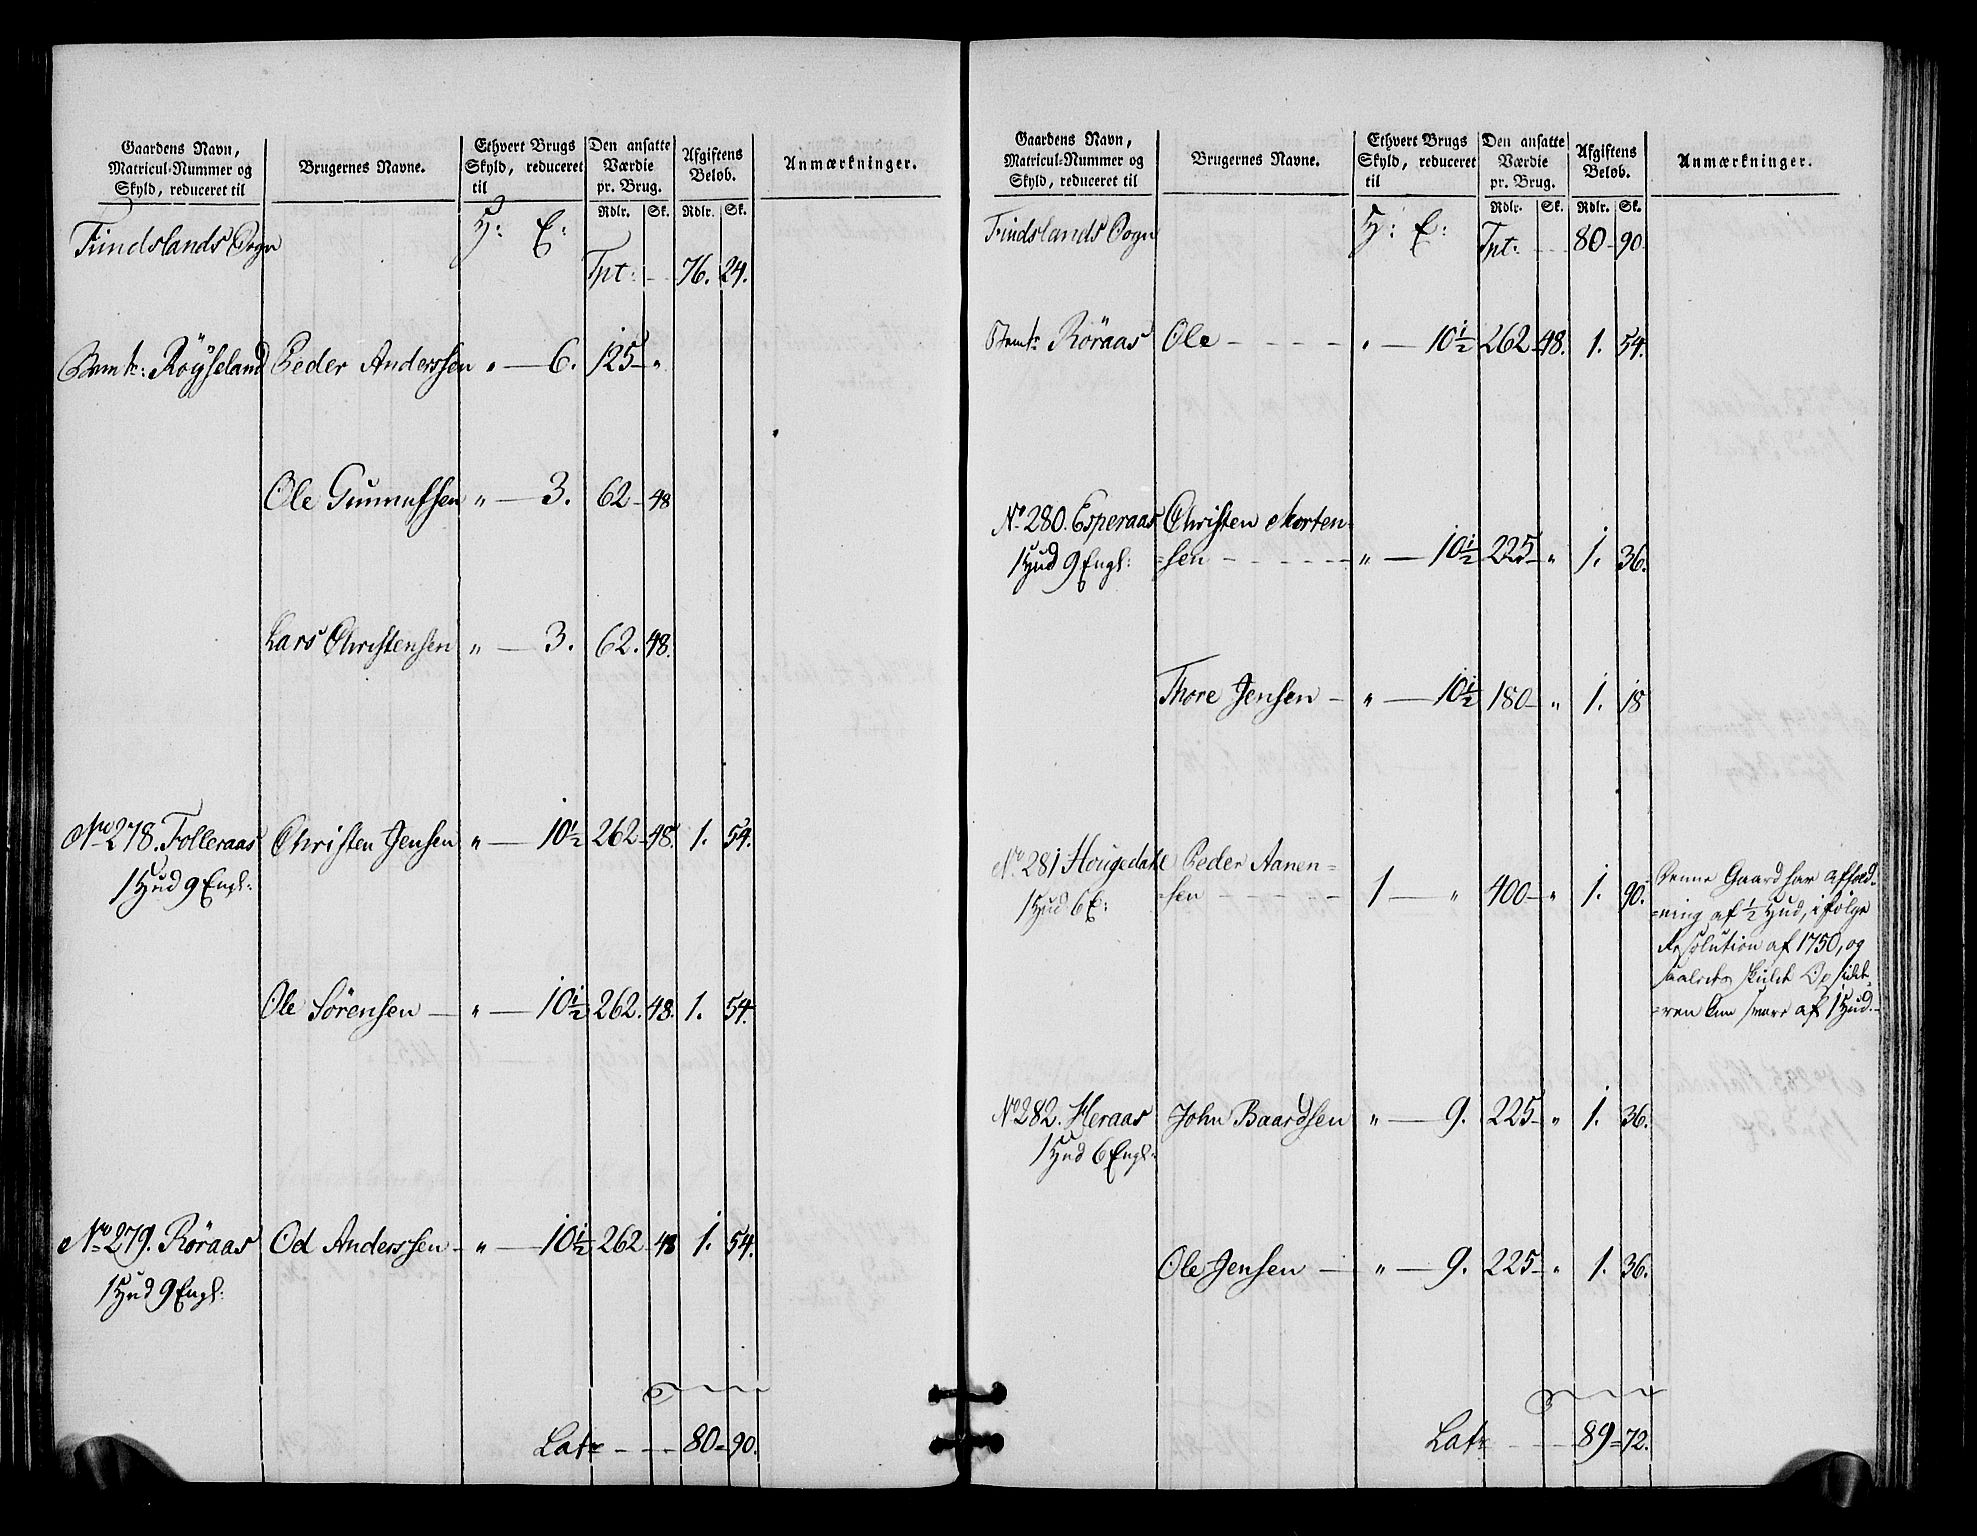 Gaardens Navn, Matricul-Nummer og Skyld, reduceret til | Brugernes Navne. | Ethvert Brugs Skyld, reduceret til | Den ansatte Værdie pr. Brug. | Afgiftens Beløb. | Anmærkninger.
Rdlr. Sk. Rdlr. Sk.
Findslands Sogn H: E:
Tpt: - - 76. 24.
Röyseland Peder Anderssen " — 6. 125 - "
Ole Gunnufsen " — 3. 62 - 48
Lars Christensen " — 3. 62. 48.
No 278. Folleraas Christen Jensen " — 10 1/2 262 - 48. 1. 54.
1 Hud 9 Engl:
Ole Sörensen — " — 10 1/2 262. 48. 1. 54.
No 279. Röraas Od Anderssen - " — 10 1/2 262 - 48 1. 54.
1 Hud 9 Engl:
Latr - - - 80 = 90.
Gaardens Navn, Matricul-Nummer og Skyld, reduceret til | Brugernes Navne. | Ethvert Brugs Skyld, reduceret til | Den ansatte Værdie pr. Brug. | Afgiftens Beløb. | Anmærkninger.
Rdlr. Sk. Rdlr. Sk.
Findslands Sogn H: E:
Tpt: - - 80 - 90.
Röraas Ole - - - - " — 10 1/2 262 - 48. 1. 54.
No 280. Esperaas Christen Morten-
1 Hud 9 Engl: =sen - - - - - " — 10 1/2 225 - " 1. 36.
Thore Jensen - " — 10 1/2 180 - " 1. 18
No 281 Hougedahl Peder Aanen-
1 Hud 6 E: =sen - - - - 1 — " 400 - " 1. 90.
Denne Gaard har affæld-
=ning af 1/2 Hud, ifölge
Resolution af 1750, og
saaledes
=ren kun svare af 1 Hud.-
No 282. Heraas John Baardsen " — 9. 225 - " 1. 36.
1 Hud 6 Engl:
Ole Jensen — " — 9. 225 - " 1. 36.
Latr - - - 89 = 72.